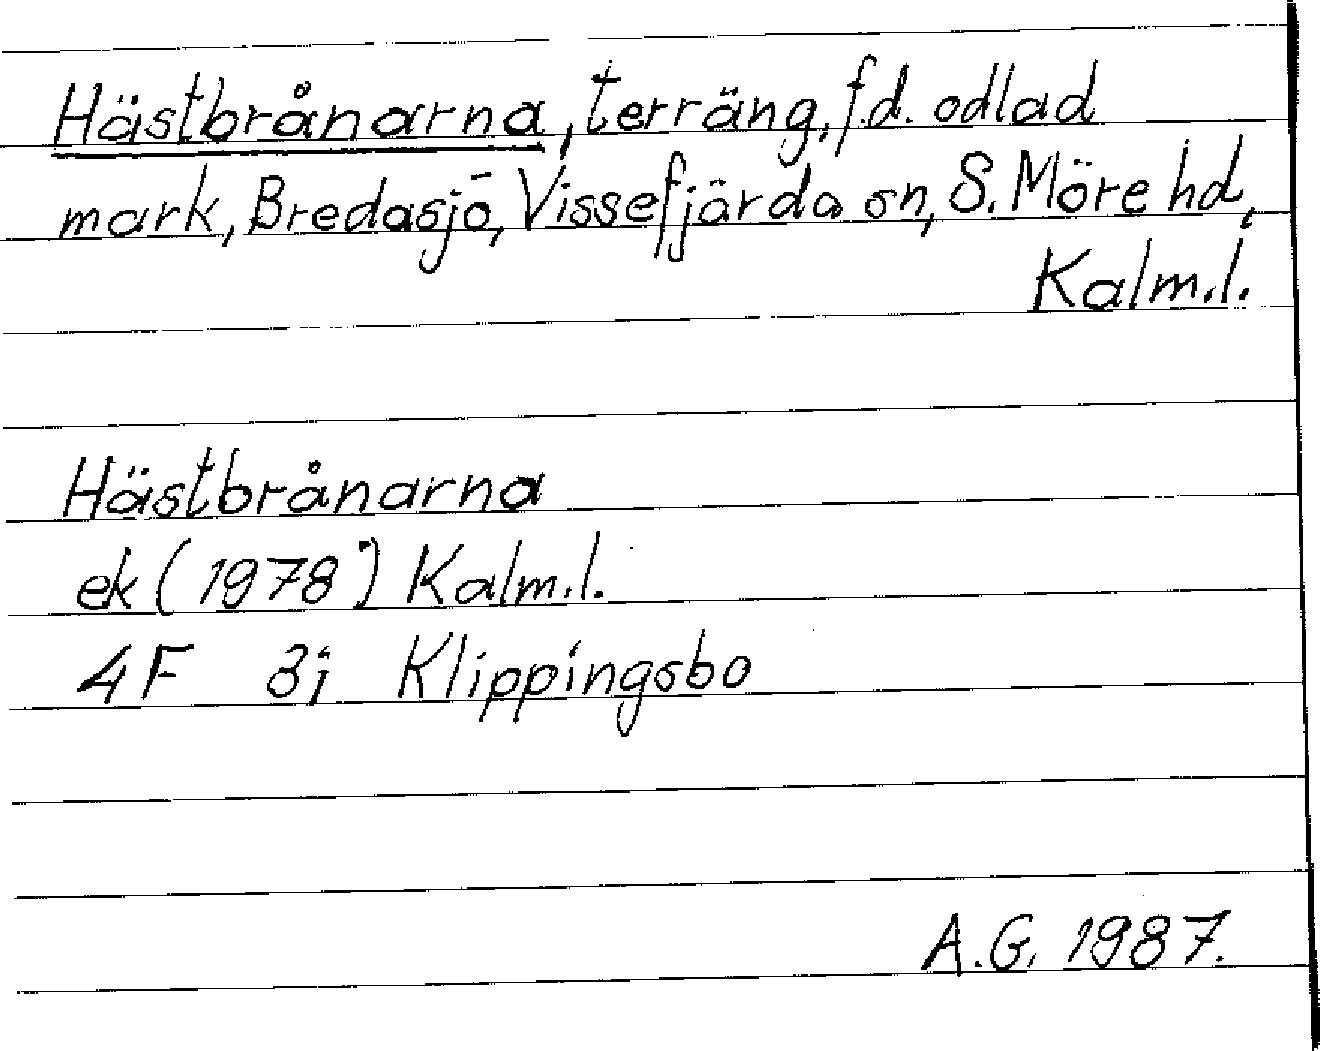 Hästbrånarna, terräng, f.d. odlad
mark, Bredasjö, Vissefjärda sn, S. Möre hd,
Kalm.l.
Hästbrånarna
ek (1978) Kalm.l.
4F 3j Klippingsbo
A.G. 1987.